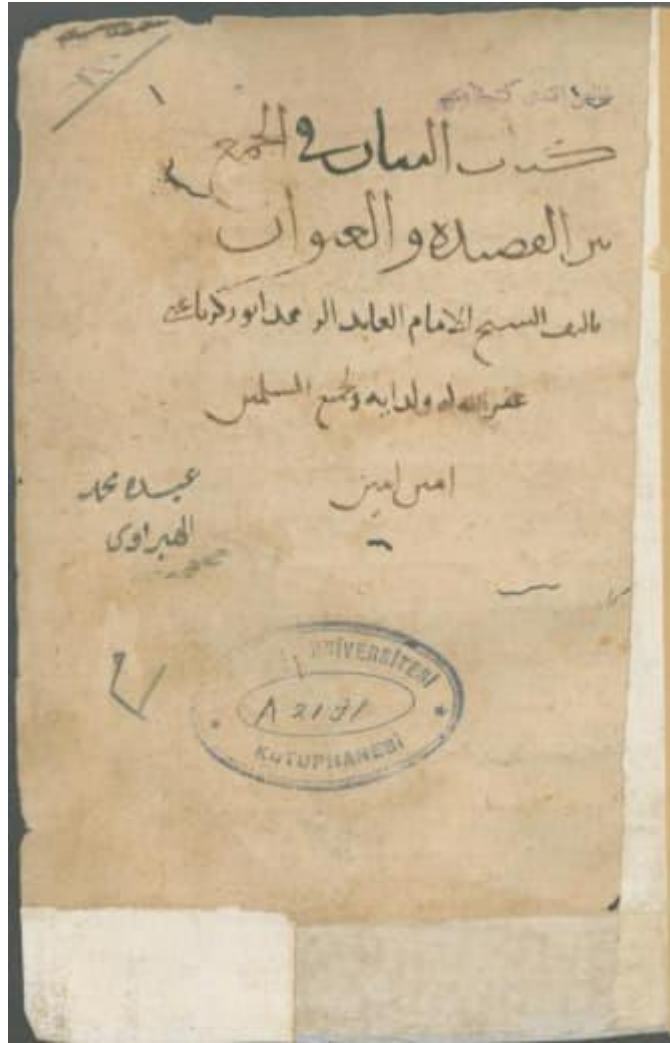 كتاب البيان في الجمع
بين القصيدة والعنوان
تاليف الشيخ الامام العابد محمد ابو زكريا
غفر الله له ولوالديه ولجميع المسلمين
امين امين
عبده محمد
الهبراوي
ÜNİVERSİTESİ
A 2131
KÜTÜPHANESİ